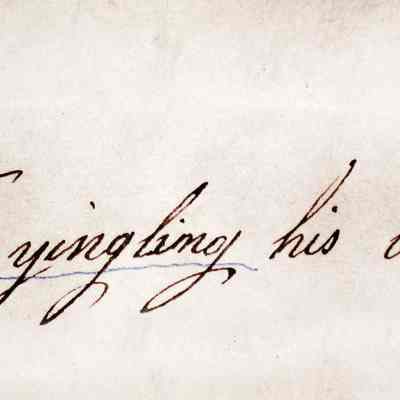 yingling his